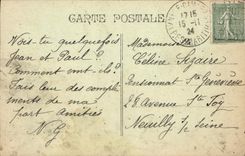 CARTE POSTALE
17 15
15-11
24
Vois-tu quelquefois
Jean et Paul ?
Comment vont-ils ?
Fais leur des compli
ments de ma
part
N. G
Mademoiselle
Céline
Pensionnat Ste Geneviève
28 Avenue Ste Foy
Neuilly s/ Seine